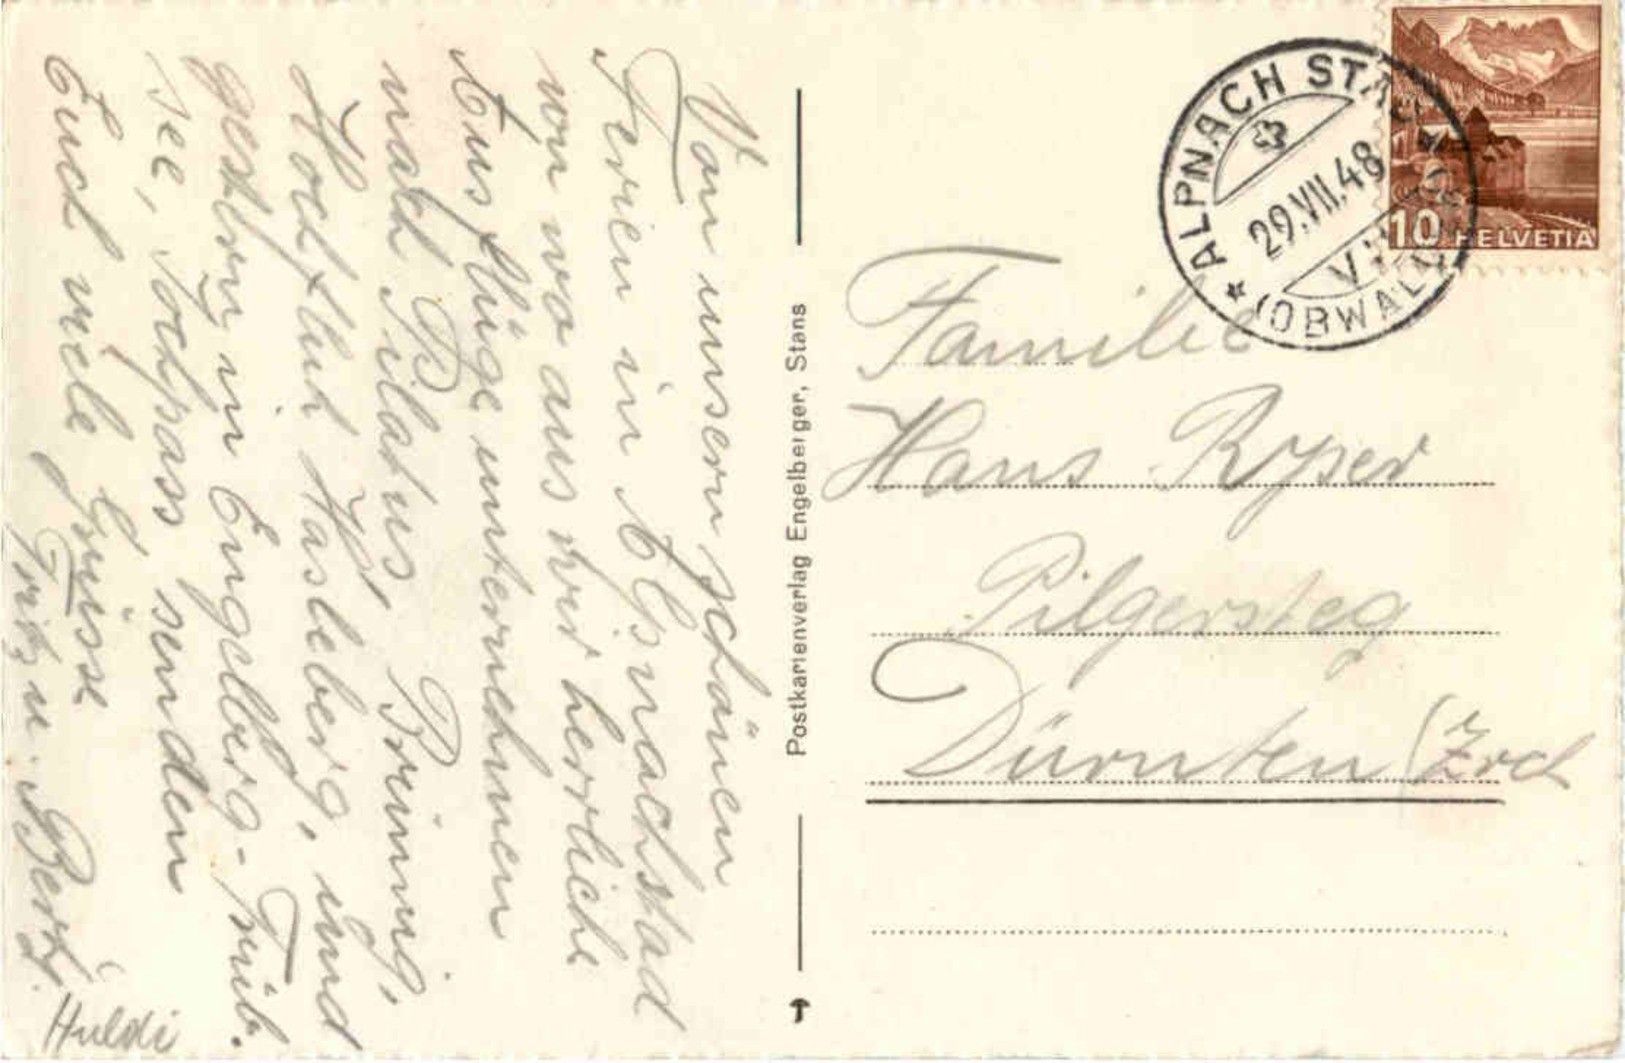 Von unsern schönen
Ferien in Alpnachstad
von wo aus wir herrliche
Ausflüge unternehmen
nach Pilatus, Brünig,
Hochfluh Hasleberg, und
gestern in Engelberg-Trüb-
see, Jochpass senden
Euch viele Grüsse
Fritz u.
Huldi
Postkartenverlag Engelberger, Stans
ALPNACH STAD
29.VII.48
(OBWALDEN)
10 HELVETIA
Familie
Hans Ryser
Pilgersteg
Dürnten (Zrch